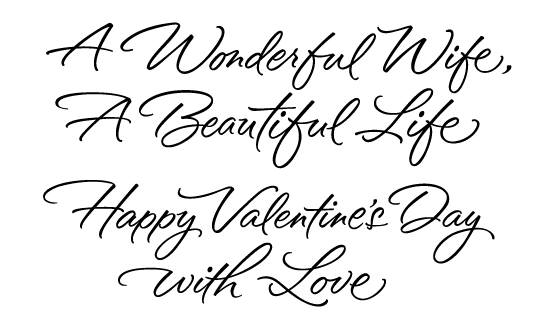 A Wonderful Wife,
A Beautiful Life
Happy Valentine's Day
with Love